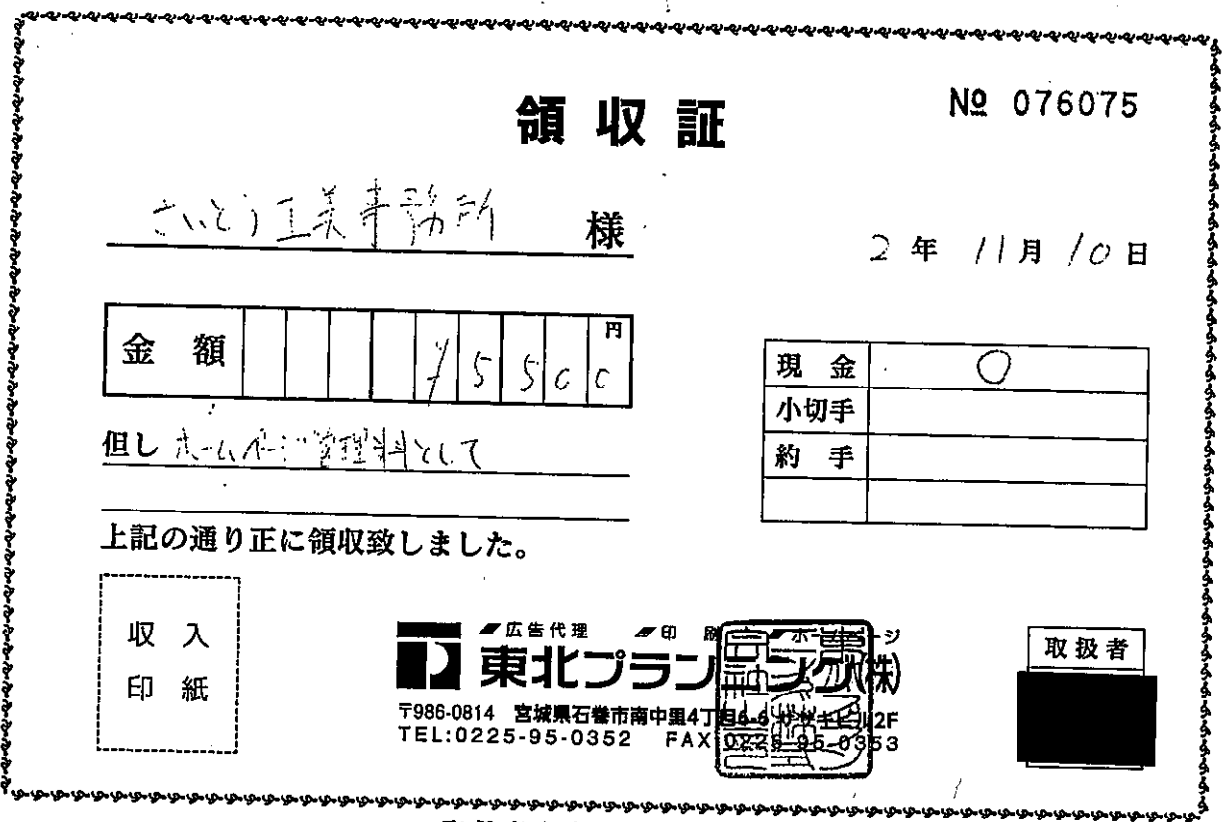 領収証
№ 076075
さいとう工業事務所 様
2 年 11 月 10 日
金額 ¥5500 円
現金 ○
小切手
約手
但し ホームページ管理料として
上記の通り正に領収致しました。
収入
印紙
広告代理 印刷 ホームページ
東北プランニング(株)
〒986-0814 宮城県石巻市南中里4丁目6-6 ササキビル2F
TEL:0225-95-0352 FAX 0225-95-0353
取扱者